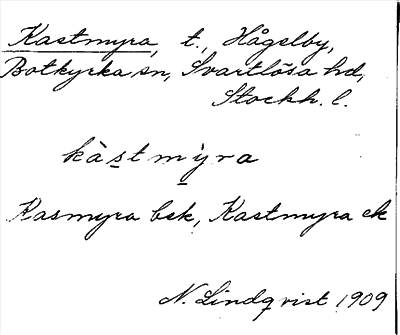 Kastmyra, t., Hågelby,
Botkyrka sn, Svartlösa hd,
Stockh. l.
kàs̲tmỳ̲ra
Kasmyra bsk, Kastmyra ek
N. Lindqvist 1909